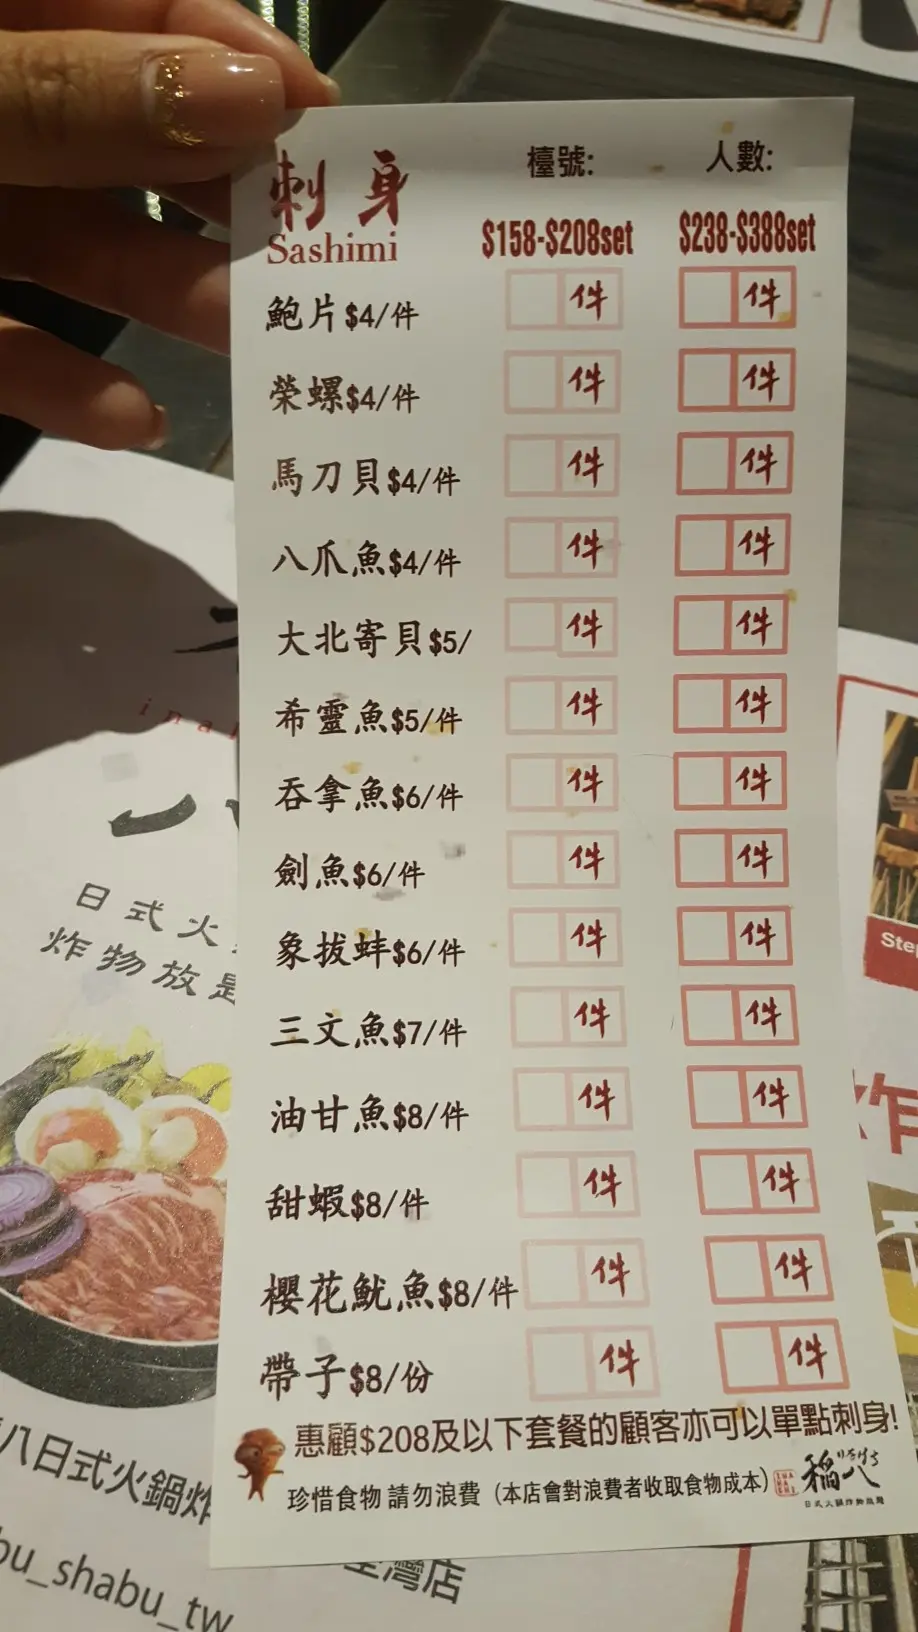 刺身
檯號:
人數:
Sashimi
$158-$208set
$238-$388set
鮑片$4/件
件
件
榮螺$4/件
件
件
馬刀貝$4/件
件
件
八爪魚$4/件
件
件
大北寄貝$5/
件
件
希靈魚$5/件
件
件
吞拿魚$6/件
件
件
劍魚$6/件
件
件
象拔蚌$6/件
件
件
三文魚$7/件
件
件
油甘魚$8/件
件
件
甜蝦$8/件
件
件
櫻花魷魚$8/件
件
件
帶子$8/份
件
件
惠顧$208及以下套餐的顧客亦可以單點刺身!
珍惜食物 請勿浪費 (本店會對浪費者收取食物成本)
稻八
日式火鍋炸物放題
ina
日式火
炸物放是
八日式火鍋炸
bu_shabu_tw
荃灣店
Step
炸